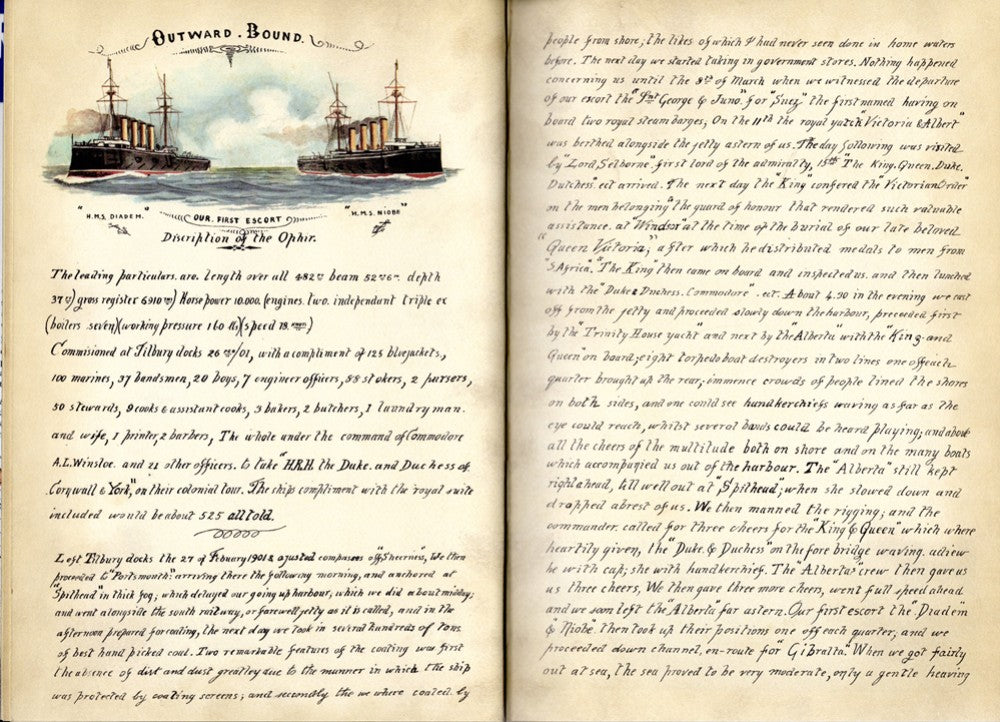 OUTWARD. BOUND.
"H.M.S. DIADEM."
OUR. FIRST ESCORT
"H.M.S. NIOBE"
Discription of the Ophir.
The leading particulars. are. length over all 482 beam depth
37 gross register 6910 Horse power 10.000. (engines. two. independant triple ex
(boilers seven)(working pressure 160 lbs)(speed 18.
Commisioned at Tilbury docks 26 /01, with a compliment of 125 bluejackets,
100 marines, 37 bandsmen, 20 boys, 7 engineer officers, 88 stokers, 2 pursers,
50 stewards, 9 cooks & assistant cooks, 3 bakers, 2 butchers, 1 laundry man.
and wife, 1 printer, 2 barbers, The whole under the command of Commodore
A.L. Winsloe. and 21 other officers. to take "H.R.H. the Duke. and Duchess of
Cornwall & York", on their colonial tour. The ships compliment with the royal suite
included would be about 525 all told.
Left Tilbury docks the 27 of Febuary 1901 & ajusted compasses off "Sheerness", We then
proceeded to "Portsmouth" arriving there the following morning, and anchored at
"Spithead" in thick fog; which delayed our going up harbour, which we did about midday;
and went alongside the south railway, or farewell jetty as it is called, and in the
afternoon prepared for coaling, the next day we took in several hundreds of tons
of best hand picked coal. Two remarkable features of the coaling was first
the absence of dirt and dust greatley due to the manner in which the ship
was protected by coaling screens; and secondly the we where coaled by
people from shore; the likes of which I had never seen done in home waters
before. The next day we started taking in government stores. Nothing happened
concerning us until the 8th of March when we witnessed the departure
of our escort the "St George & Juno". for "Suez" the first named having on
board two royal steam barges, On the 11th the royal yatch "Victoria & Albert"
was berthed alongside the jetty astern of us. The day following was visited
by "Lord, Selborne" first lord of the admiralty, 15th "The King. Queen. Duke.
Dutchess" ect arrived. The next day the "King confered the "Victorian Order"
on the men belonging the guard of honour that rendered such valuable
assistance. at "Windsor" at the time of the burial of our late beloved
"Queen Victoria," after which he distributed medals to men from
"S Africa". "The King" then came on board and inspected us. and then lunched
with the "Duke & Duchess. Commodore". ect. About 4.30 in the evening we cast
off from the jetty and proceeded slowly down the harbour, preceeded first
by the "Trinity House yacht" and next by the "Alberta" with the "King and
Queen" on board; eight torpedo boat destroyers in two lines one off each
quarter brought up the rear; immence crowds of people lined the shores
on both sides, and one could see handkerchiefs waving as far as the
eye could reach, whilst several bands could be heard playing; and above
all the cheers of the multitude both on shore and on the many boats
which accompanied us out of the harbour. The "Alberta" still kept
right ahead, till well out at "Spithead"; when she slowed down and
dropped abrest of us. We then manned the rigging; and the
commander. called for three cheers for the "King & Queen" which where
heartily given, the "Duke. & Duchess" on the fore bridge waving. adiew
he with cap; she with handkerchief. The "Alberta's" crew then gave us
us three cheers, We then gave three more cheers, went full speed ahead
and we soon left the "Alberta" far astern. Our first escort the "Diadem
& "Niobe". then took up their positions one off each quarter; and we
proceeded down channel, en-route for "Gibralta". When we got fairly
out at sea, the sea proved to be very moderate, only a gentle heaving